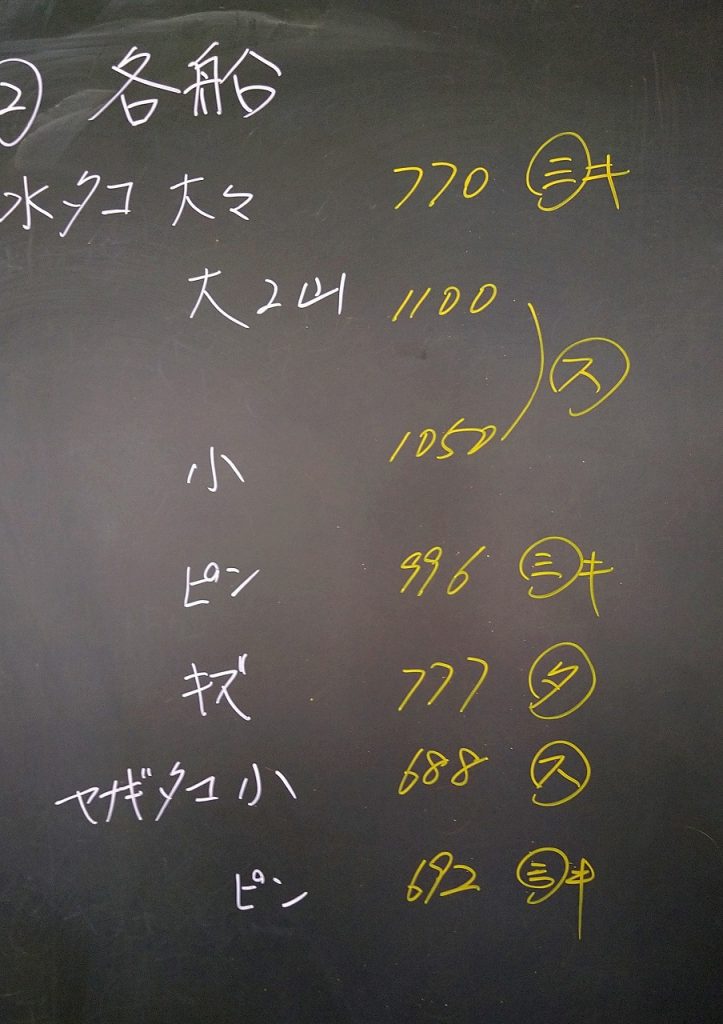 ② 各船
水タコ 大々 770 ㊂キ
大2山 1100
ス
小 1050
ピン 996 ㊂キ
キズ 777 タ
ヤナギタコ 小 688 ス
ピン 692 ㊂キ